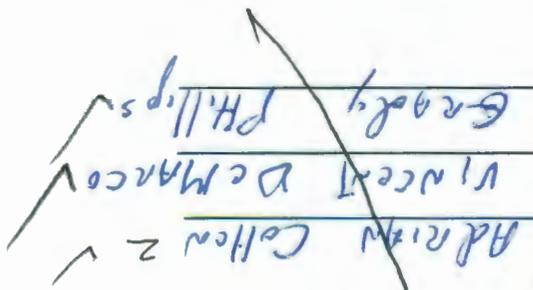 Adrian Cotton 2
Vincent DeMarco
Grady Phillips